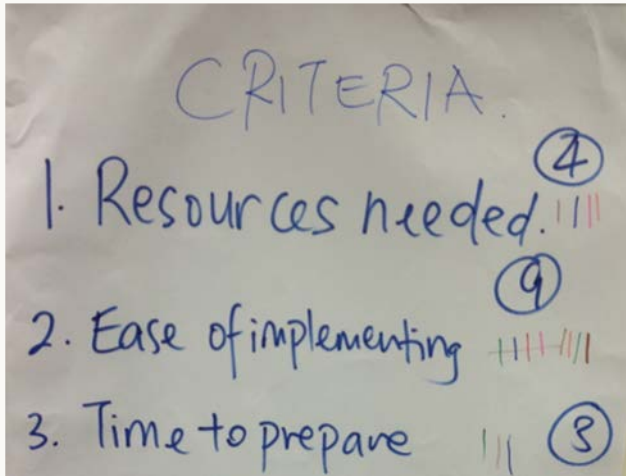 CRITERIA.
4
1. Resources needed.
9
2. Ease of implementing
3. Time to prepare 3